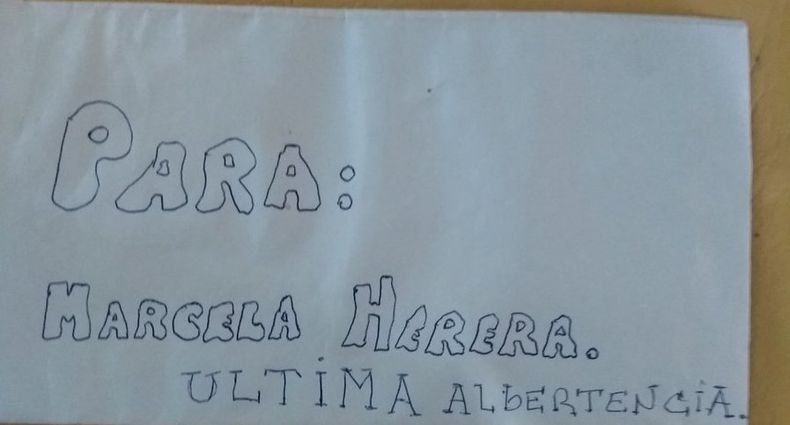 PARA:
MARCELA HERERA.
ULTIMA ALBERTENCIA.